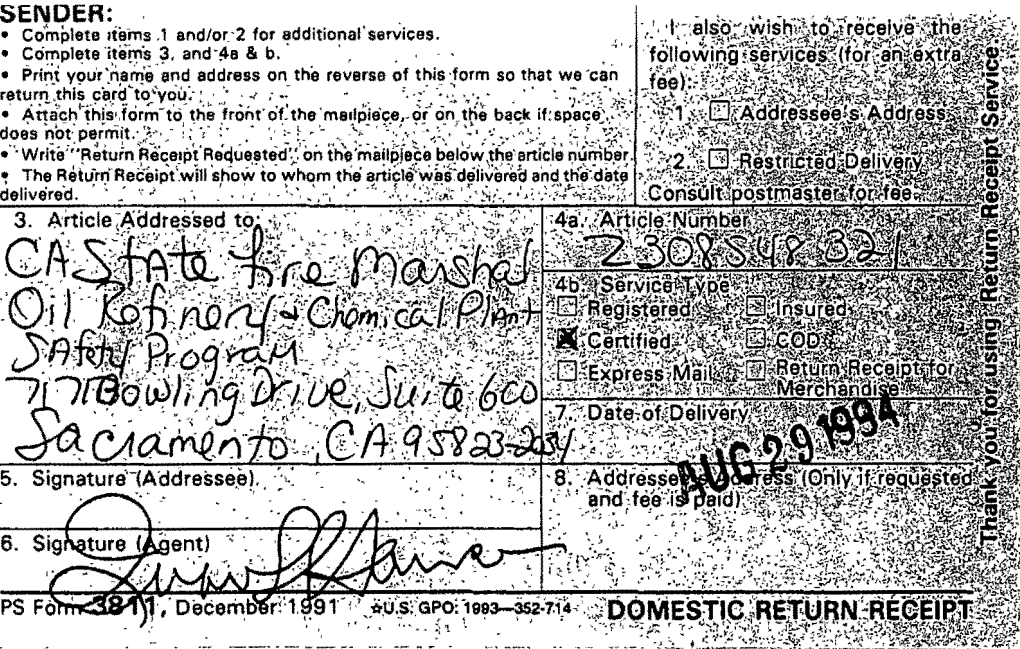 SENDER:
• Complete items 1 and/or 2 for additional services.
• Complete items 3, and 4a & b.
• Print your name and address on the reverse of this form so that we can
return this card to you.
• Attach this form to the front of the mailpiece, or on the back if space
does not permit.
• Write "Return Receipt Requested" on the mailpiece below the article number.
• The Return Receipt will show to whom the article was delivered and the date
delivered.
I also wish to receive the
following services (for an extra
fee):
1. ☐ Addressee's Address
2. ☐ Restricted Delivery
Consult postmaster for fee.
3. Article Addressed to:
CA State Fire Marshal
Oil Refinery & Chemical Plant
Safety Program
7171 Bowling Drive, Suite 600
Sacramento, CA 95823-2034
4a. Article Number
Z 308 548 321
4b. Service Type
☐ Registered ☐ Insured
☒ Certified ☐ COD
☐ Express Mail ☐ Return Receipt for
Merchandise
7. Date of Delivery
AUG 29 1994
5. Signature (Addressee)
8. Addressee's Address (Only if requested
and fee is paid)
6. Signature (Agent)
PS Form 3811, December 1991 ☆U.S. GPO: 1993—352-714 DOMESTIC RETURN RECEIPT
Thank you for using Return Receipt Service